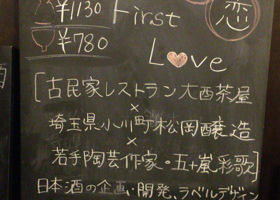 ¥1130 First 恋
¥780
Love
[古民家レストラン大西茶屋
×
埼玉県小川町松岡醸造
×
若手陶芸作家・五十嵐彩歌]
日本酒の企画・開発、ラベルデザイン